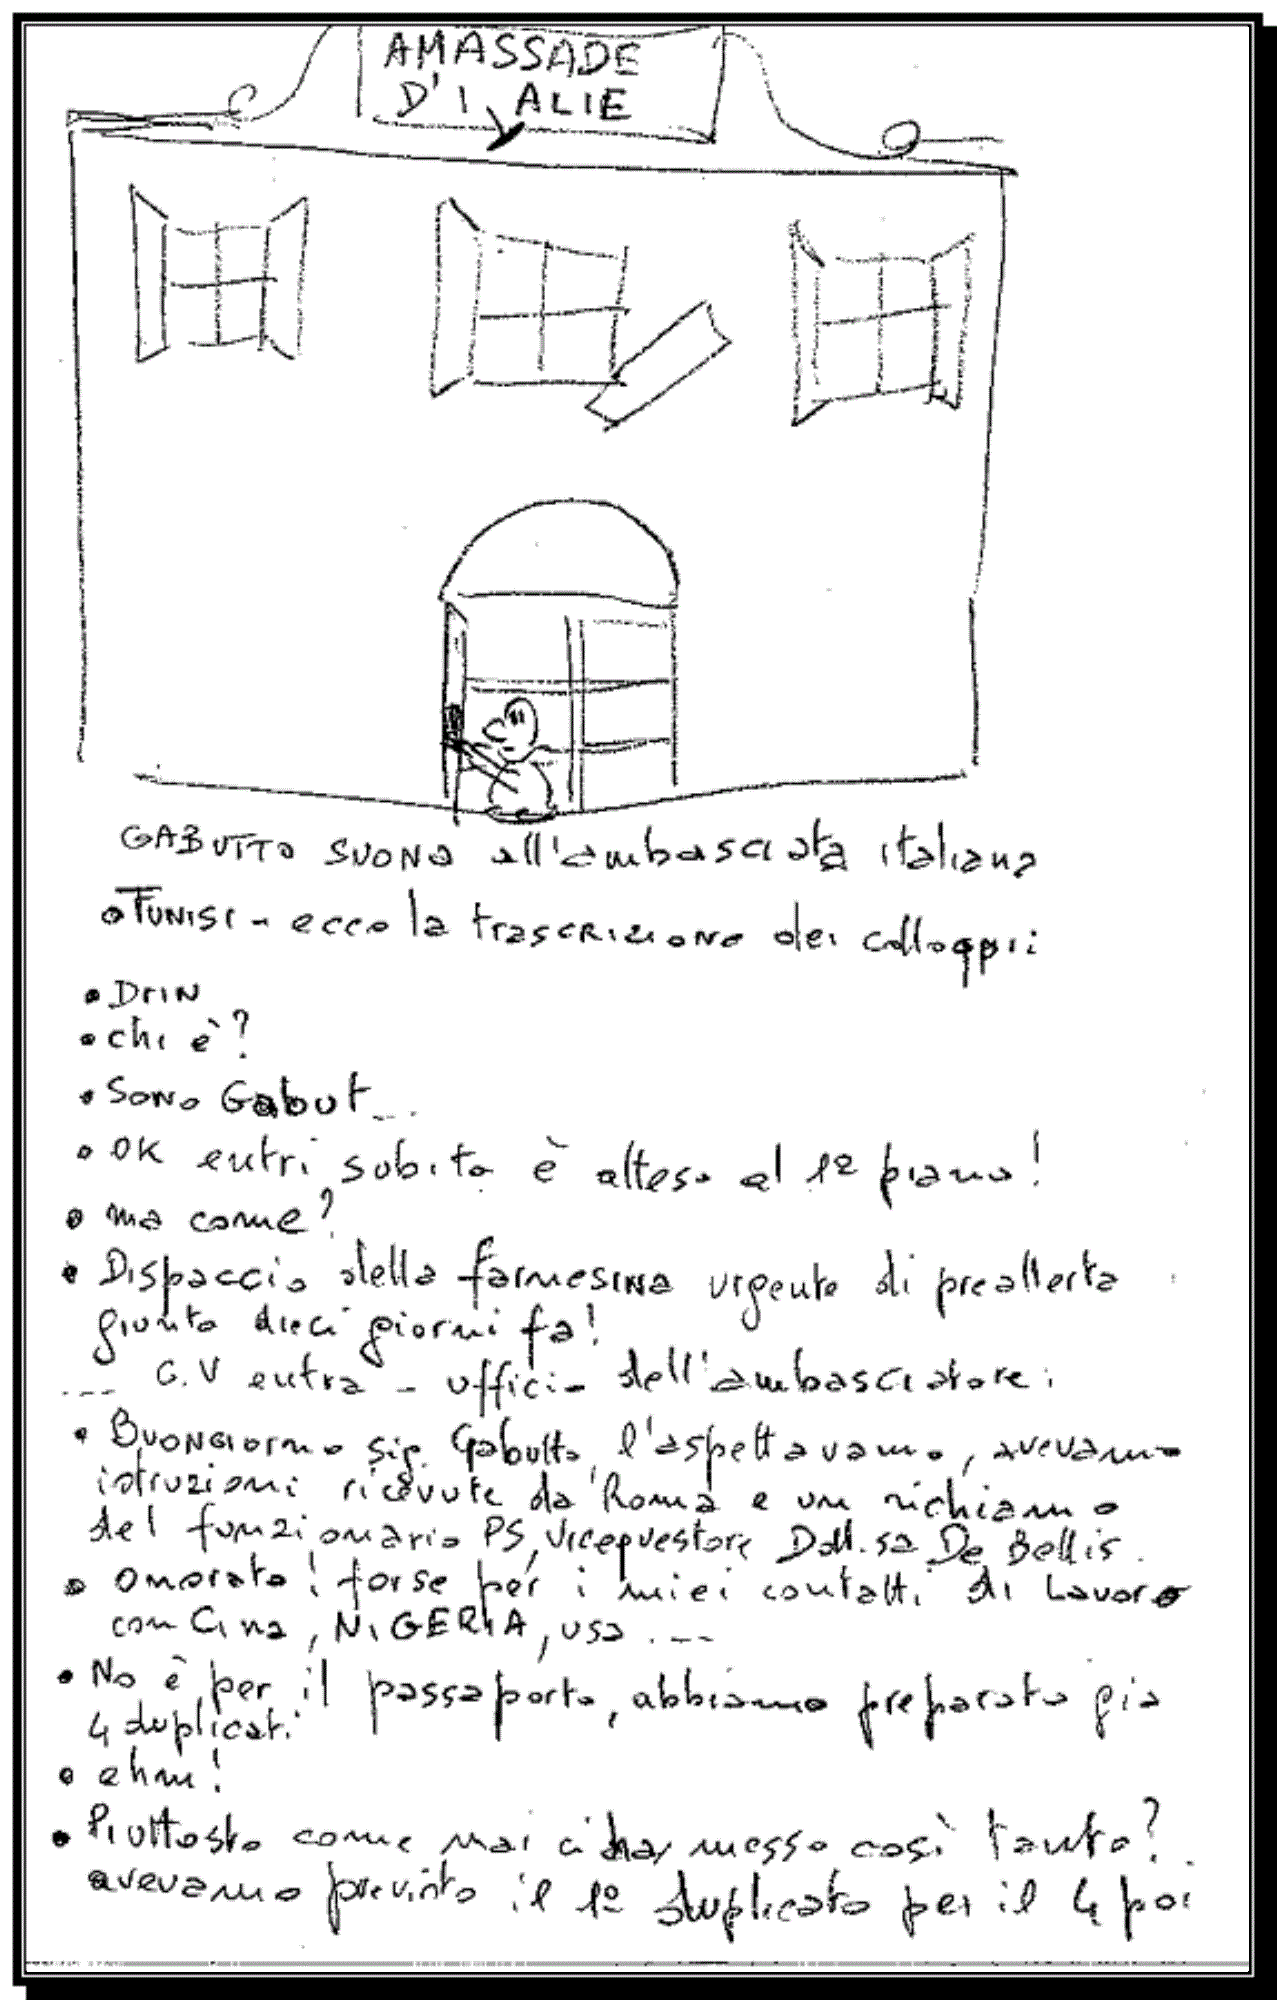 AMASSADE
D'I ALIE
GABUTTO SUONA all'ambasciata italiana
• TUNISI - ecco la trascrizione dei colloqui:
• Drin
• chi è?
• Sono Gabut...
• OK entri subito è atteso al 1º piano!
• ma come?
• Dispaccio della farnesina urgente di preallerta
giunto dieci giorni fa!
--- G.V entra - uffici- dell'ambasciatore:
• Buongiorno sig. Gabutto, l'aspettavamo, avevamo
istruzioni ricevute da Roma e un richiamo
del funzionario PS, Vicequestore Dott.sa De Bellis.
• Onorato! forse per i miei contatti di Lavoro
con Cina, NIGERIA, usa ...
• No è per il passaporto, abbiamo preparato già
4 duplicati
• ehm!
• Piuttosto come mai ci ha messo così tanto?
avevamo previsto il 1º duplicato per il 4 poi